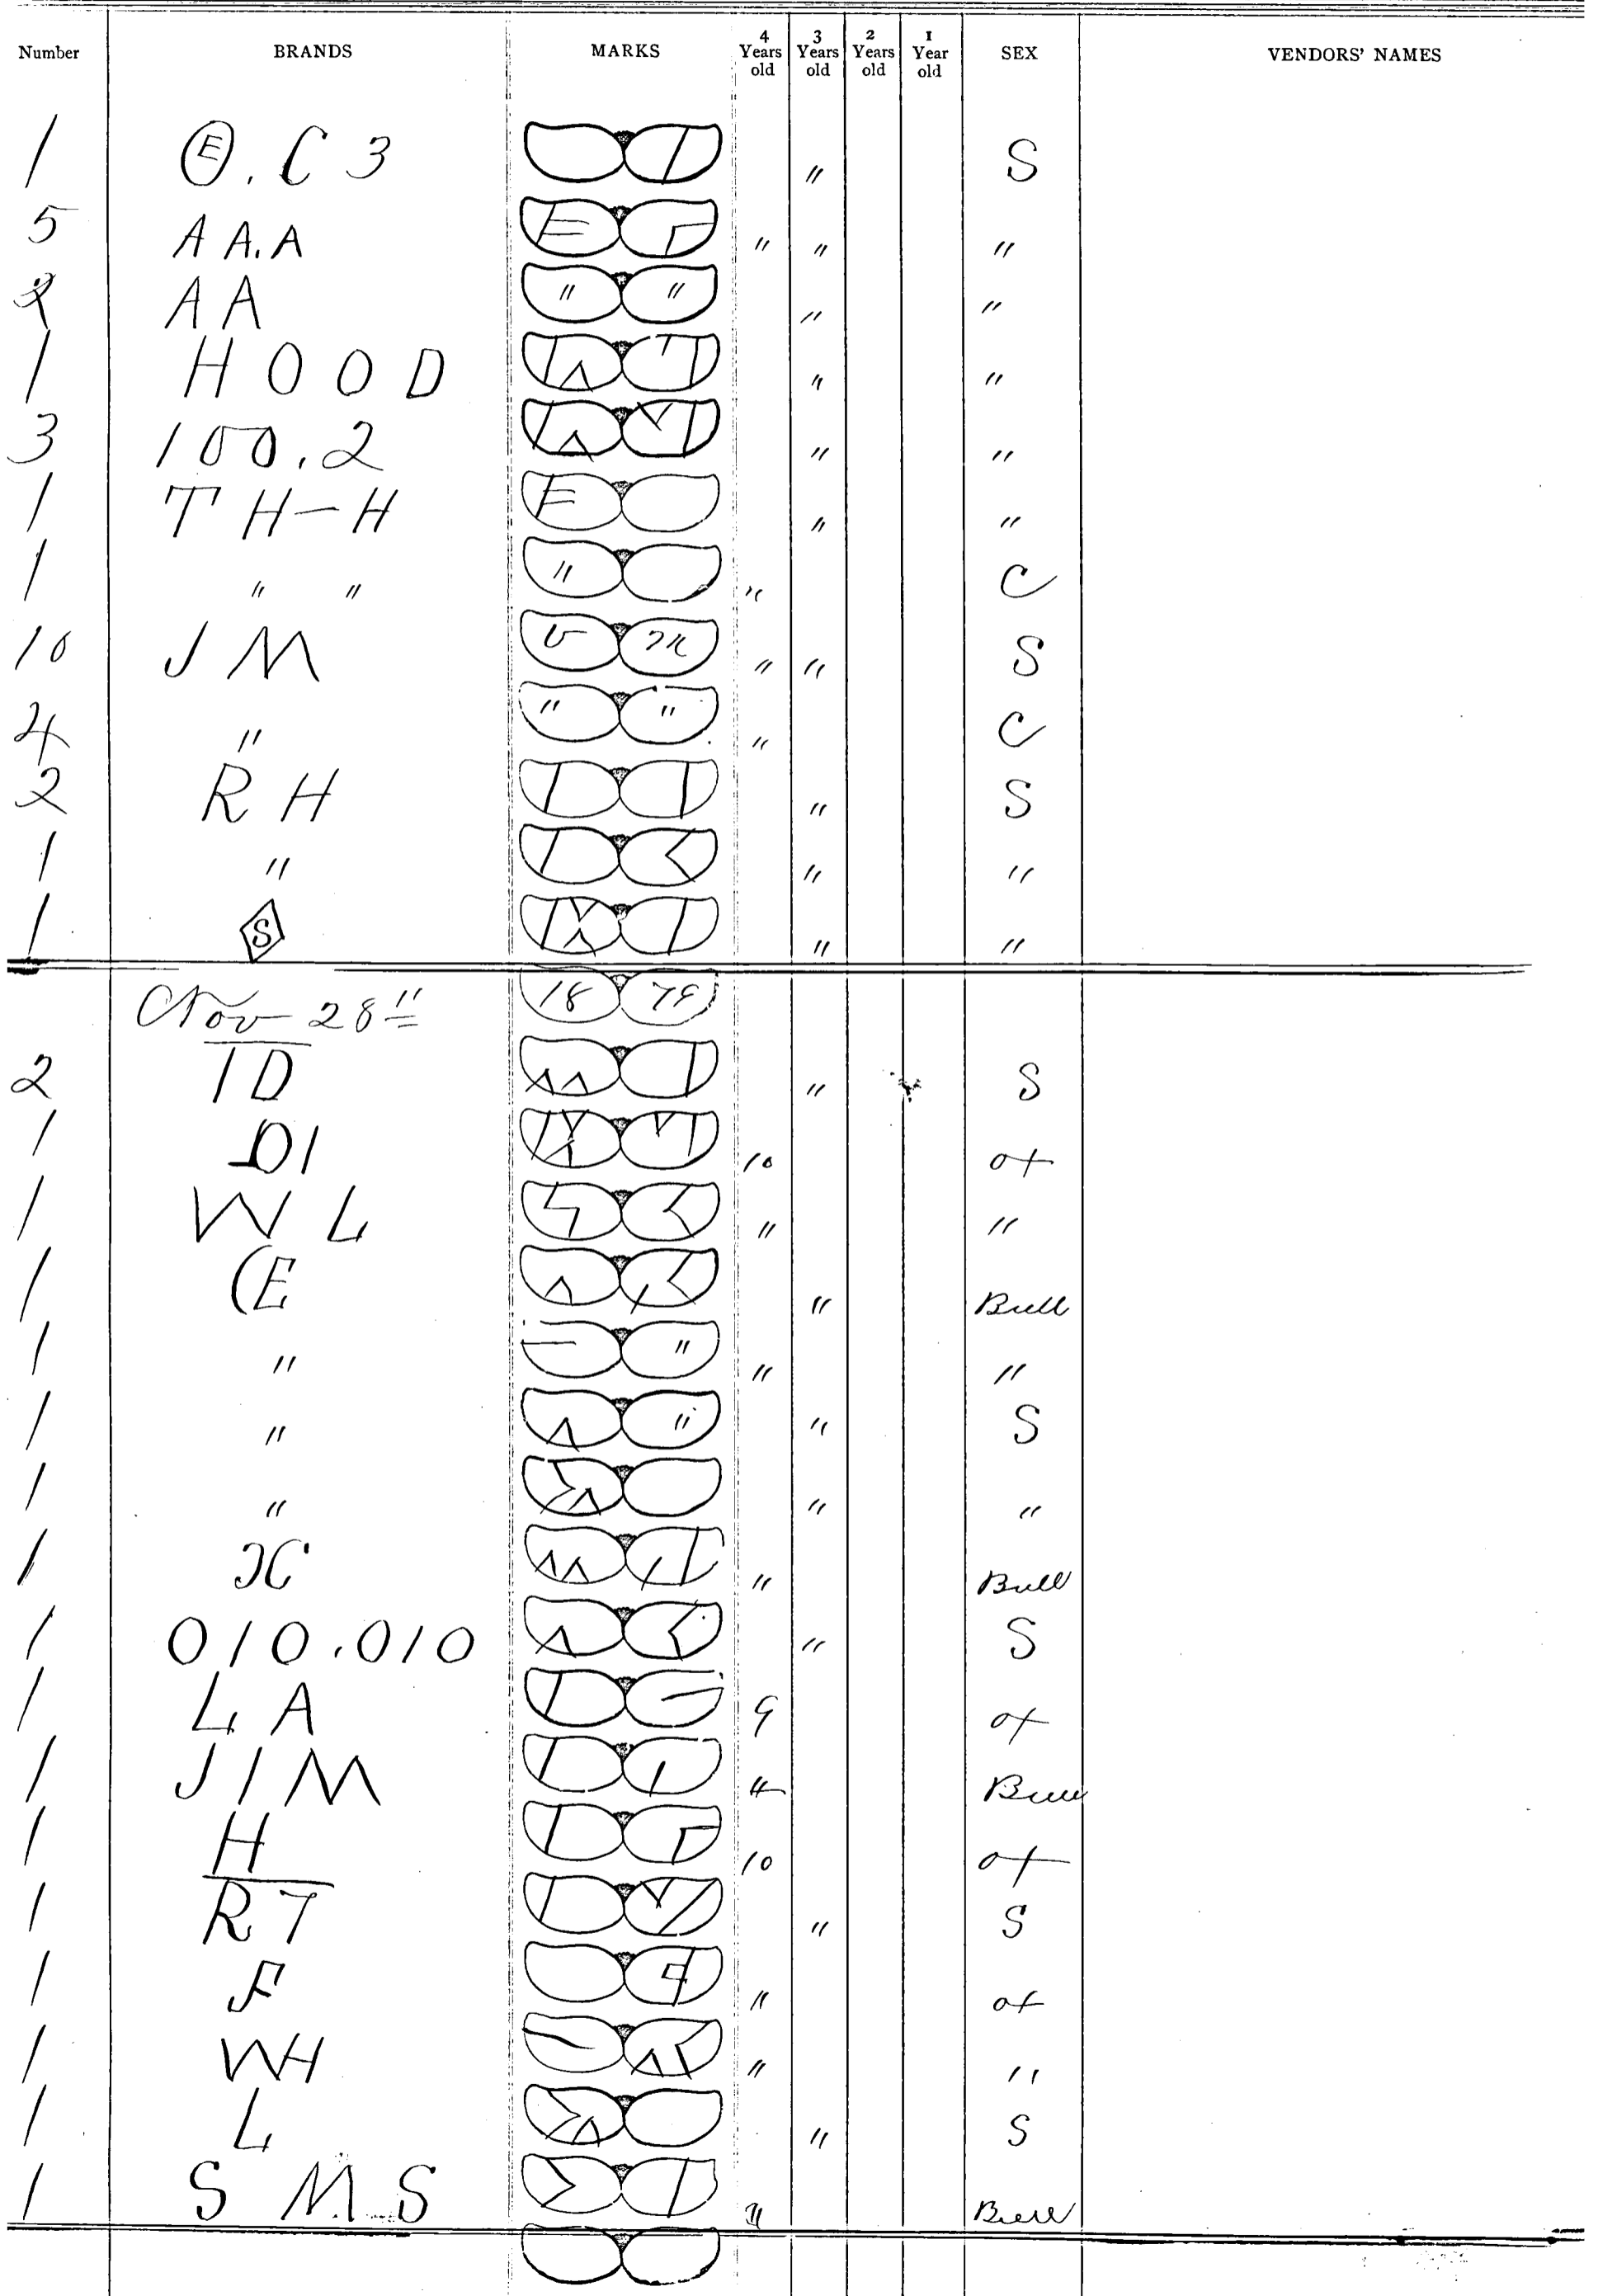 Number BRANDS MARKS 4 Years old 3 Years old 2 Years old 1 Year old SEX VENDORS' NAMES
1 Ⓔ. C 3 " S
5 A A. A " " "
2 A A " " " "
1 H O O D " "
3 100.2 " "
1 T H—H " "
1 " " " " C
10 J M " " S
4 " " " " C
2 R H " S
1 " " "
1 S " "
Nov 28" 18 79
2 I D " S
1 DI 10 ox
1 W L " "
1 (E " Bull
1 " " " "
1 " " " S
1 " " "
1 " Bull
1 010.010 " S
1 L A 9 ox
1 J I M 4 Bull
1 H 10 ox
1 R T " S
1 F " ox
1 WH " "
1 L " S
1 S M S " Bull